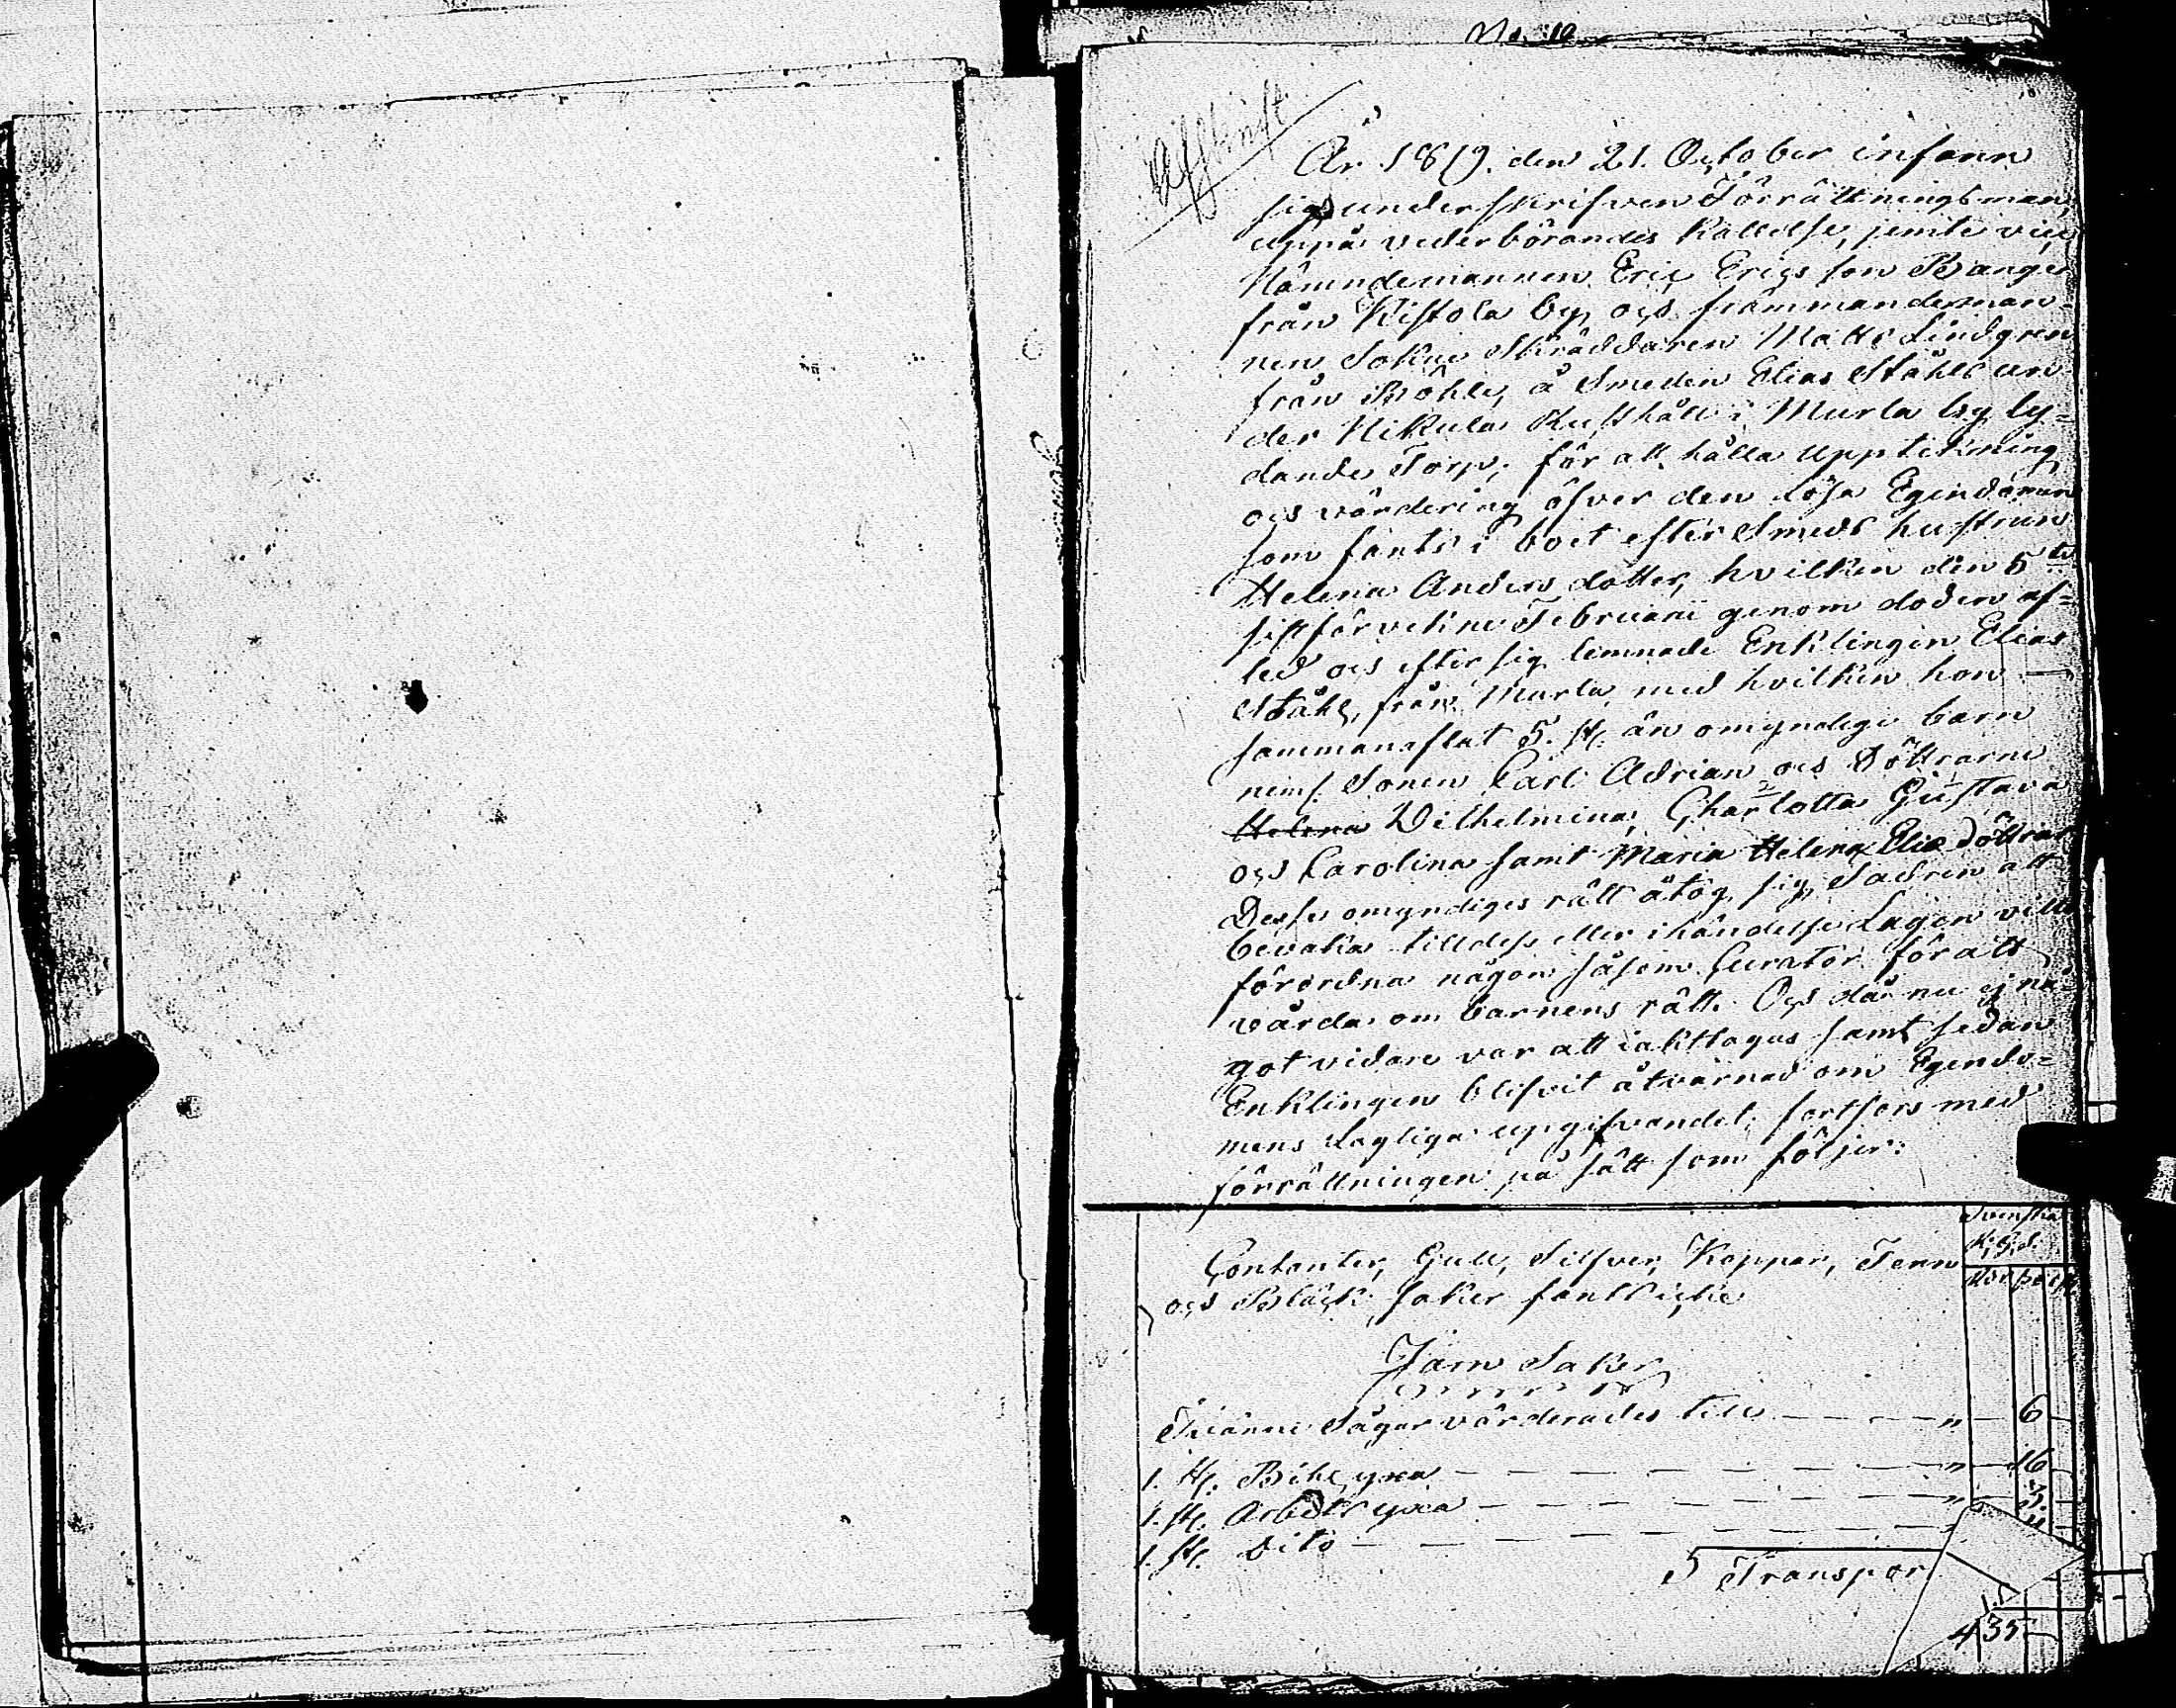 No. 10
Afskrift
År 1819. den 21. October infann
sig underskrifven Förrättningsman,
uppå vederbörandes kallelse, jemte vice
Nämndemannen Eric Ericsson Bange
från Kistola by, och främmandeman=
nen Sokne Skräddaren Matts Lindgren
från Böhle, å Smeden Elias Ståhls un=
der Nikula Rusthåll i Murla by ly=
dande Torp; för att hålla uppteckning
och värdering öfver den Lösa Egendomen
som fants i boet efter Smeds hustrun
Helena Anders dotter, hvilken den 5te
sistförvekne Februarii genom döden af=
led och efter sig lemnade Enklingen Elias
Ståhl, från Murla, med hvilken hon
sammanaflat 5. st. än omyndige barn
neml. Sonen Carl Adrian och Döttrarne
Helena Vilhelmina, Charlotta Gustava
och Carolina samt Maria Helena Elie Döttrar
Desse omyndiges rätt åtog sig Fadren att
bevaka tilldess eller ihändelse Lagen vill
förordna någon såsom Curator för att
vårda om barnens rätt. Och då nu ej nå=
got vidare var att iakttagas samt sedan
Enklingen blifvit åtvarnad om Egendo=
mens Lagliga uppgifvandet, fortfors med
förrättningen på sätt som följer:
Svenska
R.G.S.
Contanter, Gull, Silfver, Koppar, Tenn
och Bläck saker fants icke
Järn Saker
Tvänne Sågar värderades till — — — „ 6
1. st. Bihl yxa — — — „ 16
1. st. Arbets yxa — — — „ 3.
1. st. Dito — — —
Transpor
435